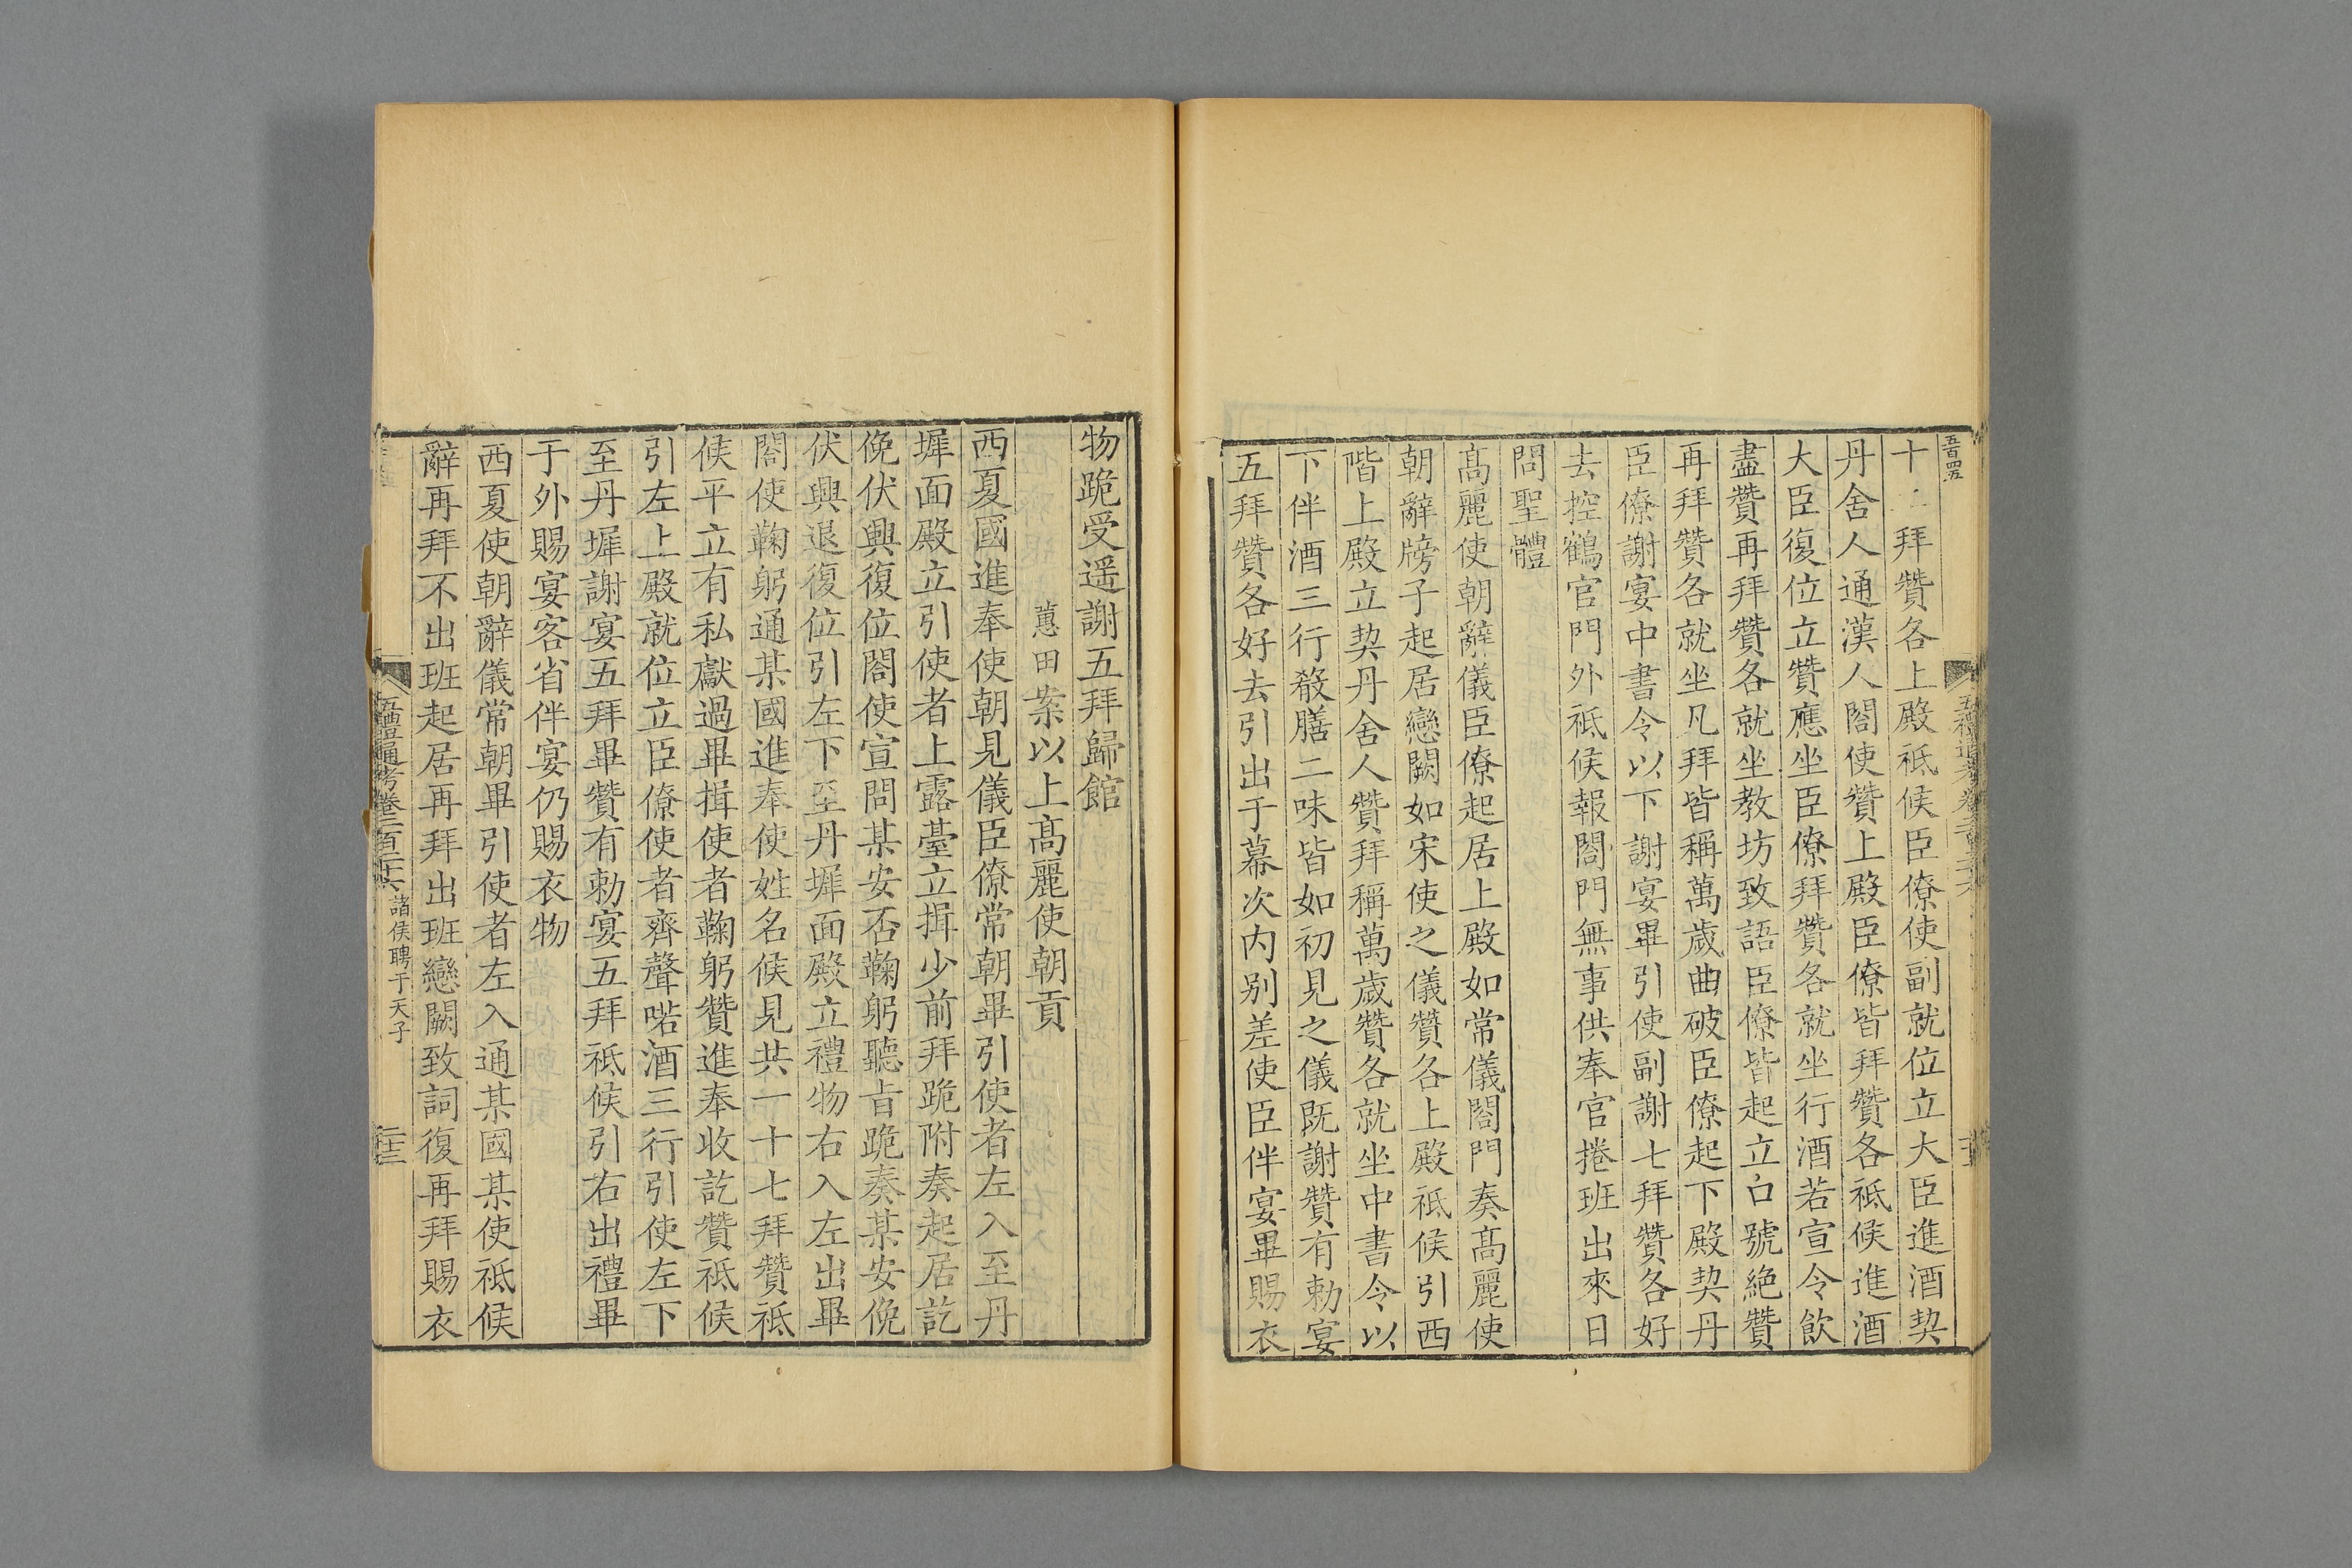 五百四五
十二拜贊各上殿祗候臣僚使副就位立大臣進酒契
丹舍人通漢人閤使贊上殿臣僚皆拜贊各祗候進酒
大臣復位立贊應坐臣僚拜贊各就坐行酒若宣令飲
盡贊再拜贊各就坐教坊致語臣僚皆起立口號絶贊
再拜贊各就坐凡拜皆稱萬歲曲破臣僚起下殿契丹
臣僚謝宴中書令以下謝宴畢引使副謝七拜贊各好
去控鶴官門外祗候報閤門無事供奉官捲班出來日
問聖體
高麗使朝辭儀臣僚起居上殿如常儀閤門奏高麗使
朝辭牓子起居戀闕如宋使之儀贊各上殿祗候引西
階上殿立契丹舍人贊拜稱萬歲贊各就坐中書令以
下伴酒三行殽膳二味皆如初見之儀既謝贊有勅宴
五拜贊各好去引出于幕次内别差使臣伴宴畢賜衣
物跪受遥謝五拜歸館
蕙田案以上高麗使朝貢
西夏國進奉使朝見儀臣僚常朝畢引使者左入至丹
墀面殿立引使者上露臺立揖少前拜跪附奏起居訖
俛伏興復位閤使宣問某安否鞠躬聽旨跪奏某安俛
伏興退復位引左下至丹墀面殿立禮物右入左出畢
閤使鞠躬通某國進奉使姓名候見共一十七拜贊祗
候平立有私獻過畢揖使者鞠躬贊進奉收訖贊祗候
引左上殿就位立臣僚使者齊聲喏酒三行引使左下
至丹墀謝宴五拜畢贊有勅宴五拜祗候引右出禮畢
于外賜宴客省伴宴仍賜衣物
西夏使朝辭儀常朝畢引使者左入通某國某使祗候
辭再拜不出班起居再拜出班戀闕致詞復再拜賜衣
五禮通考卷二百二十六 諸侯聘于天子